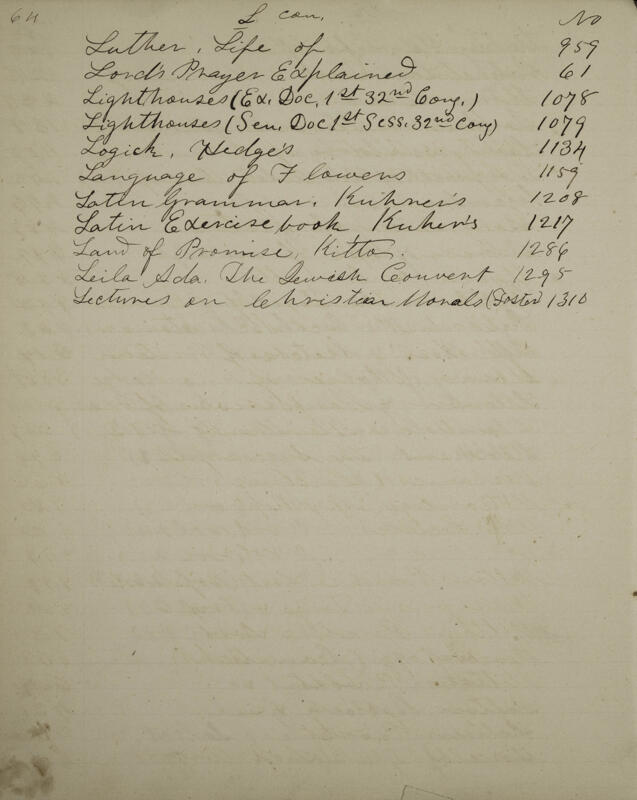 64 L con. No
Luther, Life of 959
Lord's Prayer Explained 61
Lighthouses (Ex. Doc. 1st 32nd Cong.) 1078
Lighthouses (Sen. Doc 1st Sess. 32nd Cong) 1079
Logick, Hedge's 1134
Language of Flowers 1159
Latin Grammar, Kuhner's 1208
Latin Exercise book Kuher's 1217
Land of Promise, Kitto. 1286
Leila Ada. The Jewish Convert 1295
Lectures on Christian Morals (Foster) 1310